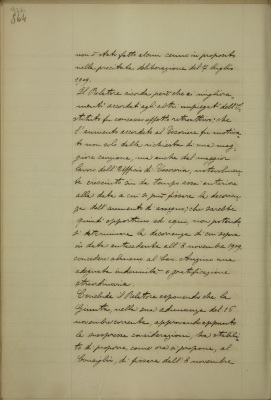 864
non è stato fatto alcun cenno in proposito
nella precitata deliberazione del 7 luglio
1909.
Il Relatore ricorda però che ai migliora
menti accordati agli altri impiegati dell'I
stituto fu concesso effetto retroattivo; che
l'aumento accordato al Tesoriere fu motiva
to non solo dalla richiesta di una mag
giore cauzione, ma anche dal maggior
lavoro dell'Ufficio di Tesoreria, notevolmen
te cresciuto in un tempo assai anteriore
alla data a cui si può fissare la decorren
za dell'aumento di assegno; che sarebbe
quindi opportuno ed equo, non potendo
si determinare la decorrenza di cui sopra
in data antecedente all'8 novembre 1909,
concedere almeno al Cav. una
adeguata indennità o gratificazione
straordinaria.
Conclude il Relatore esponendo che la
Giunta, nella sua adunanza del 15
novembre corrente, approvando appunto
le suespresse considerazioni, ha stabili
to di proporre, come ora si propone, al
Consiglio, di fissare dall'8 novembre